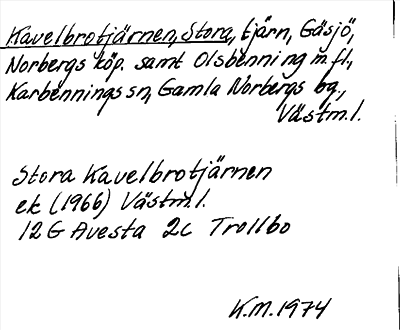 Kavelbrotjärnen, Stora, tjärn, Gäsjö,
Norbergs köp. samt Olsbenning m.fl.,
Karbennings sn, Gamla Norbergs bg.,
Västm.l.
Stora Kavelbrotjärnen
ek (1966) Västm.l.
12G Avesta 2c Trollbo
K.M. 1974